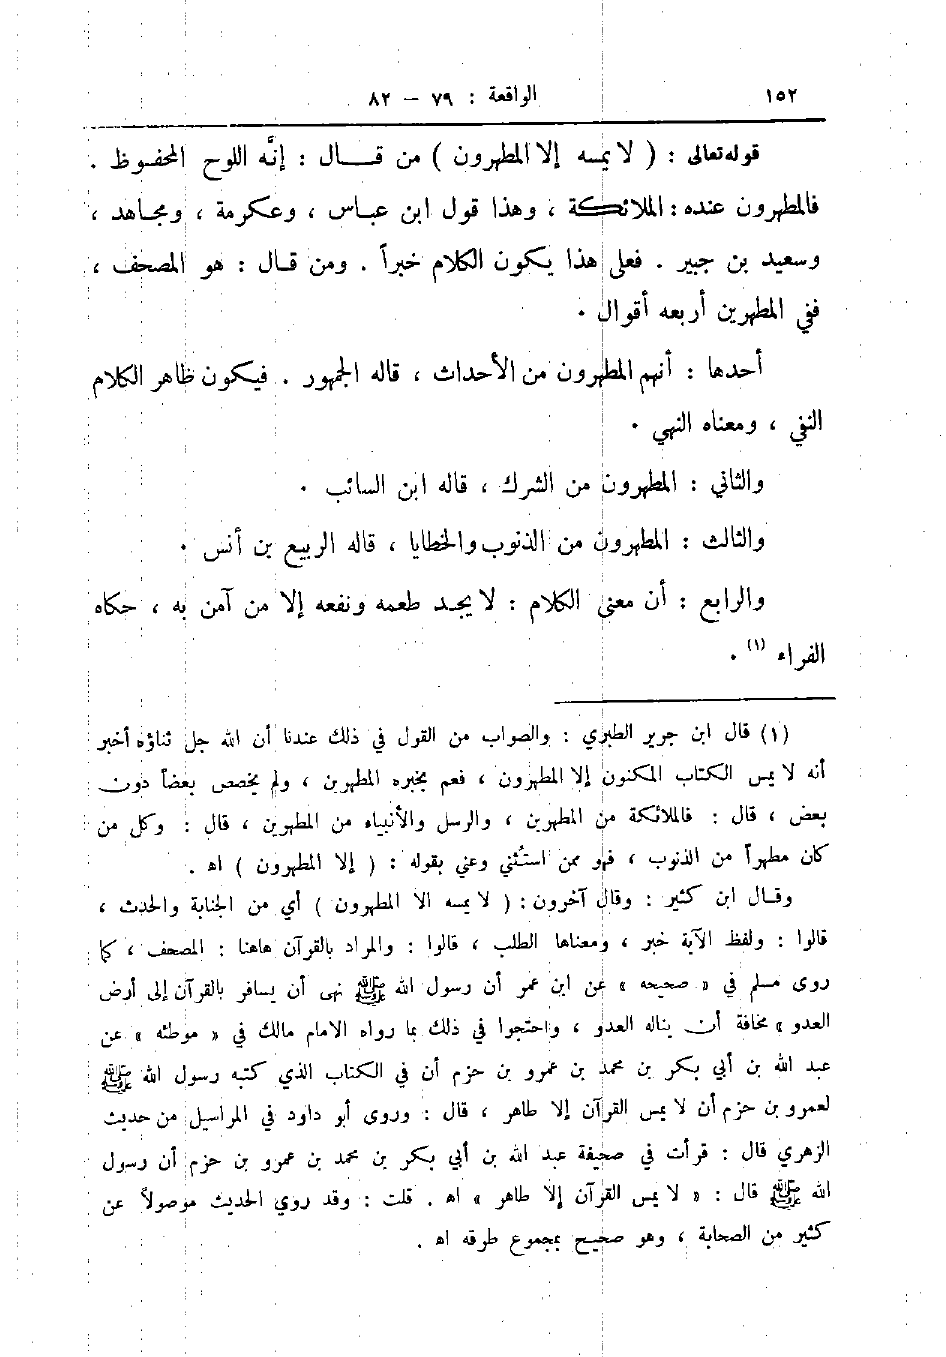 ١٥٢ الواقعة : ٧٩ – ٨٢
قوله تعالى : ( لا يمسه إلا المطهرون ) من قـــال : إنَّه اللوح المحفـوظ .
فالمطهرون عنده : الملائكة ، وهذا قول ابن عبـاس ، وعـكرمة ، ومجـاهد ،
وسعيد بن جبير . فعلى هذا يـكون الكلام خبراً . ومن قـال : هو المصحف ،
ففي المطهرين أربعه أقوال .
أحدها : أنهم المطهرون من الأحداث ، قاله الجمهور . فيكون ظاهر الكلام
النفي ، ومعناه النهي .
والثاني : المطهرون من الشرك ، قاله ابن السائب .
والثالث : المطهرون من الذنوب والخطايا ، قاله الربيع بن أنس .
والرابع : أن معنى الكلام : لا يجـد طعمه ونفعه إلا من آمن به ، حكاه
الفراء (١) .
(١) قال ابن جرير الطبري : والصواب من القول في ذلك عندنا أن الله جل ثناؤه أخبر
أنه لا يمس الكتاب المكنون إلا المطهرون ، فعم بخبره المطهرين ، ولم يخصص بعضاً دون
بعض ، قال : فالملائكة من المطهرين ، والرسل والأنبياء من المطهرين ، قال : وكل من
كان مطهراً من الذنوب ، فهو ممن استُثني وعني بقوله : ( إلا المطهرون ) اه .
وقـال ابن كثير : وقال آخرون : ( لا يمسه الا المطهرون ) أي من الجنابة والحدث ،
قالوا : ولفظ الآية خبر ، ومعناها الطلب ، قالوا : والمراد بالقرآن هاهنا : المصحف ، كما
روى مسلم في « صحيحه » عن ابن عمر أن رسول الله ﷺ نهى أن يسافر بالقرآن إلى أرض
العدو » مخافة أن يناله العدو ، واحتجوا في ذلك بما رواه الامام مالك في « موطئه » عن
عبد الله بن أبي بكر بن محمد بن عمرو بن حزم أن في الكتاب الذي كتبه رسول الله ﷺ
لعمرو بن حزم أن لا يمس القرآن إلا طاهر ، قال : وروى أبو داود في المراسيل من حديث
الزهري قال : قرأت في صحيفة عبد الله بن أبي بكر بن محمد بن عمرو بن حزم أن رسول
الله ﷺ قال : « لا يمس القرآن إلا طاهر » اه . قلت : وقد روي الحديث موصولاً عن
كثير من الصحابة ، وهو صحيح بمجموع طرقه اه .